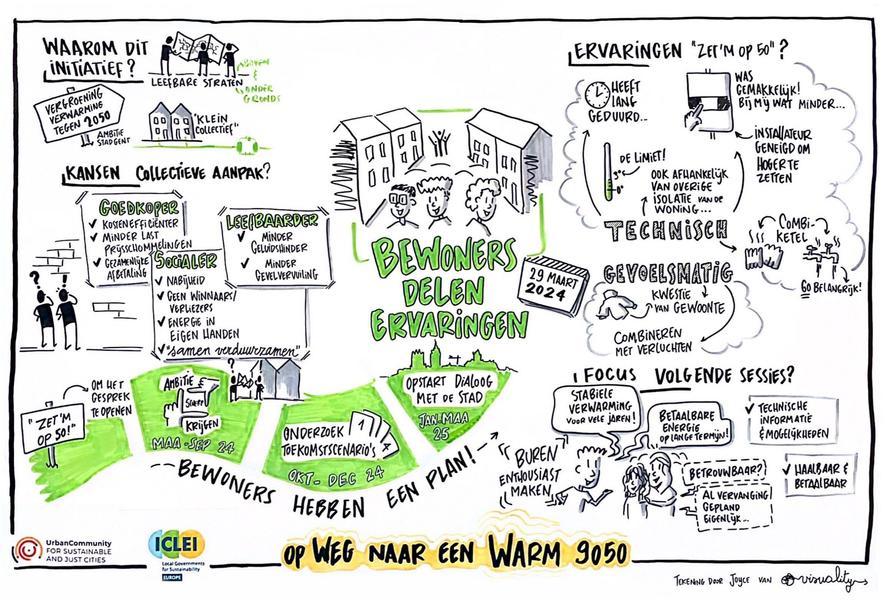 WAAROM DIT
INITIATIEF?
LEEFBARE STRATEN
BOVEN
&
ONDER
GRONDS
VERGROENING
VERWARMING
TEGEN 2050
AMBITIE
STAD GENT
"KLEIN
COLLECTIEF"
KANSEN COLLECTIEVE AANPAK?
GOEDKOPER
KOSTENEFFICIËNTER
MINDER LAST
PRIJSSCHOMMELINGEN
GEZAMENLIJKE
AFBETALING
LEEFBAARDER
MINDER
GELUIDSHINDER
MINDER
GEVELVERVUILING
SOCIALER
NABIJHEID
GEEN WINNAARS/
VERLIEZERS
ENERGIE IN
EIGEN HANDEN
"samen verduurzamen"
BEWONERS
DELEN
ERVARINGEN
29 MAART
2024
ERVARINGEN "ZET'M OP 50"?
HEEFT
LANG
GEDUURD...
WAS
GEMAKKELIJK!
BIJ MIJ WAT MINDER...
INSTALLATEUR
GENEIGD OM
HOGER TE
ZETTEN
DE LIMIET!
OOK AFHANKELIJK
VAN OVERIGE
ISOLATIE VAN DE
WONING...
TECHNISCH
COMBI-
KETEL
GO BELANGRIJK!
GEVOELSMATIG
KWESTIE
VAN GEWOONTE
COMBINEREN
MET VERLUCHTEN
"ZET'M
OP 50!"
OM HET
GESPREK
TE OPENEN
AMBITIE
SCHERP
KRIJGEN
MAA-SEP 24
ONDERZOEK
TOEKOMSTSCENARIO'S
1
4
OKT- DEC 24
OPSTART DIALOOG
MET DE STAD
JAN-MAA
25
BEWONERS HEBBEN EEN PLAN!
FOCUS VOLGENDE SESSIES?
STABIELE
VERWARMING
VOOR VELE JAREN!
BETAALBARE
ENERGIE
OP LANGE TERMIJN!
TECHNISCHE
INFORMATIE
& MOGELIJKHEDEN
"BUREN
ENTHOUSIAST
MAKEN"
BETROUWBAAR?
AL VERVANGING
GEPLAND
EIGENLIJK...
HAALBAAR &
BETAALBAAR
UrbanCommunity
FOR SUSTAINABLE
AND JUST CITIES
ICLEI
Local Governments
for Sustainability
EUROPE
OP WEG NAAR EEN WARM 9050
TEKENING DOOR JOYCE VAN visuality